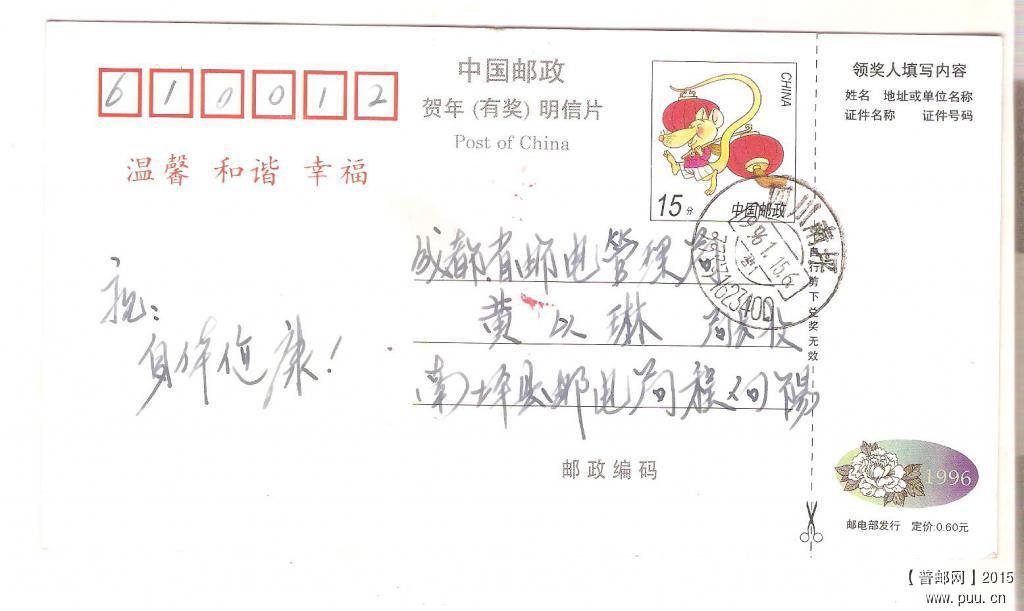 610012
温馨 和谐 幸福
中国邮政
贺年(有奖)明信片
Post of China
CHINA
15分
中国邮政
四川南坪
96.1.15.6
623400
祝:
身体健康!
成都省邮电管理局
黄以琳 局长收
南坪县邮电局程向陽
邮政编码
自行剪下兑奖无效
领奖人填写内容
姓名 地址或单位名称
证件名称 证件号码
1996
邮电部发行 定价:0.60元
【普邮网】2015
www.puu.cn